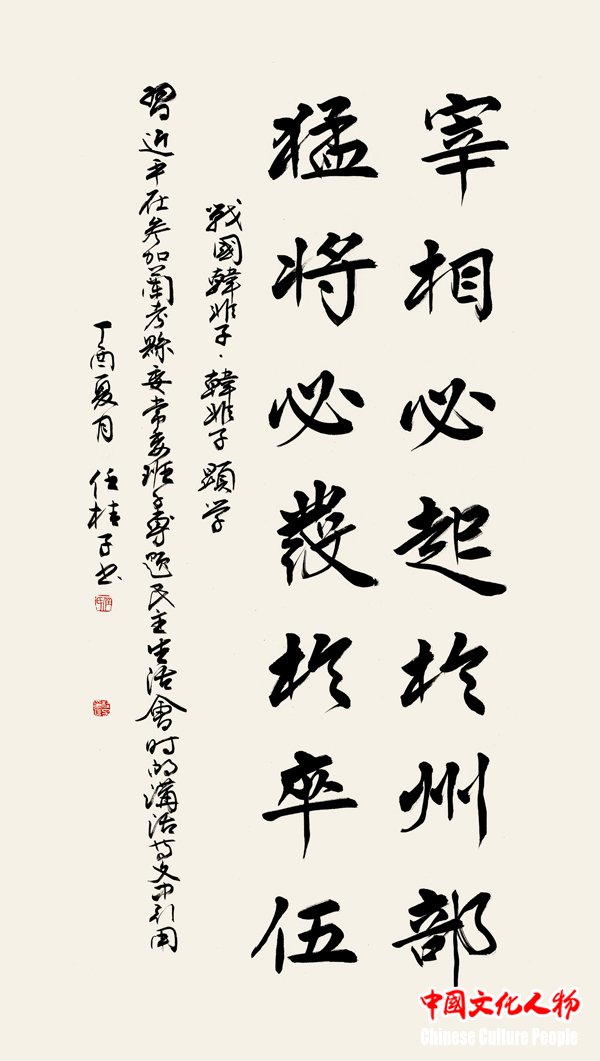 宰相必起於州部
猛將必發於卒伍
戰國韓非子·韓非子 顯学
習近平在参加蘭考縣委常委班子專题民主生活會时的講话等文中引用
丁酉夏月 任桂子书
中國文化人物
Chinese Culture People